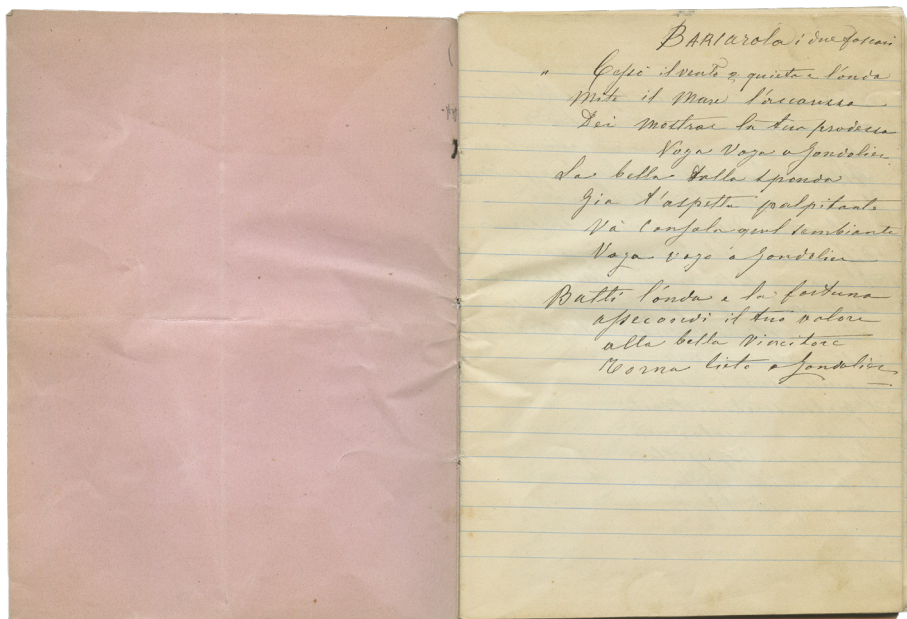 Barcarola i due foscari
" Cessò il vento e quieta e l'onda
Mite il mare l'accarezza
Dei mostrar la tua prodessa
Voga Voga o Gondolier
La bella dalla sponda
Gia t'aspetta palpitante
Và consola quel sembiante
Voga voga o Gondolier
Batti l'onda e la fortuna
assecondi il tuo valore
alla bella vincitore
Torna lieto o Gondolier